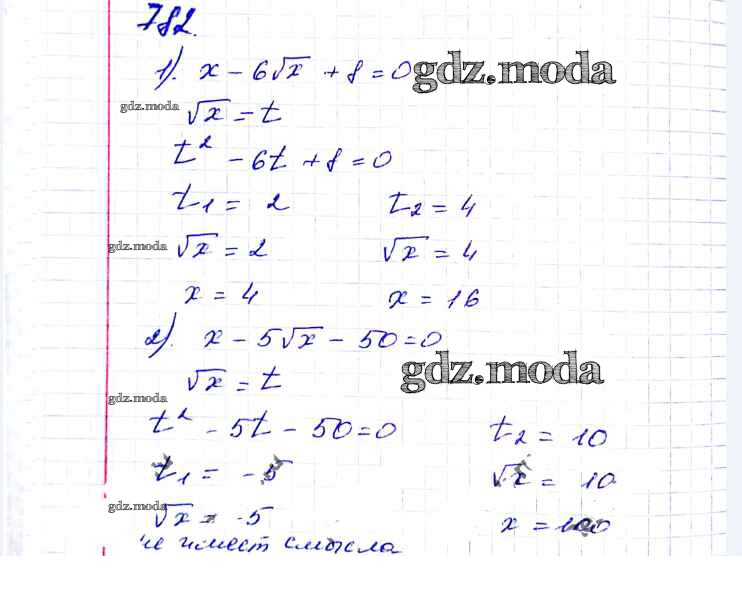 782.
1). x - 6√x + 8 = 0 gdz.moda
gdz.moda √x = t
t² - 6t + 8 = 0
t₁ = 2 t₂ = 4
gdz.moda √x = 2 √x = 4
x = 4 x = 16
2). x - 5√x - 50 = 0
gdz.moda
√x = t
gdz.moda
t² - 5t - 50 = 0 t₂ = 10
t₁ = -5 √x = 10
gdz.moda √x = -5 x = 100
не имеет смысла